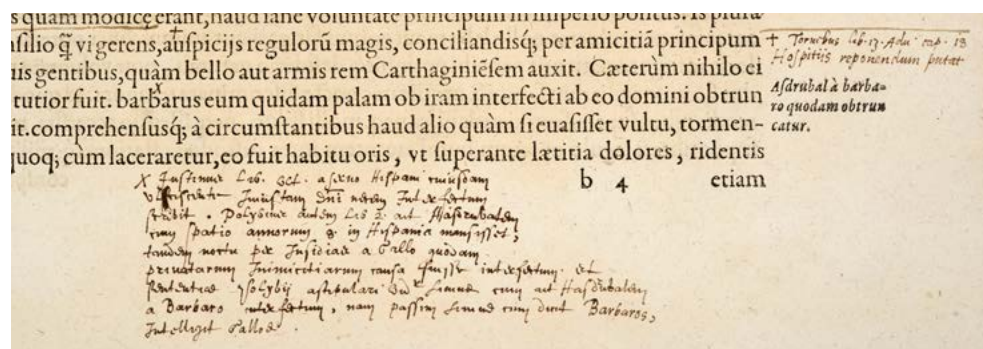 s quam modicę erant, haud sane voluntate principum in imperio positus. Is plura
ſilio q̃ vi gerens, auſpicijs regulorū magis, conciliandisq́; per amicitiã principum
iis gentibus, quàm bello aut armis rem Carthaginiẽſem auxit. Cæterùm nihilo ei
tutior fuit. barbarus eum quidam palam ob iram interfecti ab eo domini obtrun
it. comprehenſusq́; à circumſtantibus haud alio quàm ſi euaſiſſet vultu, tormen-
quoq; cùm laceraretur, eo fuit habitu oris, vt ſuperante lætitia dolores, ridentis
b 4 etiam
† lib. 13. Adu. cap. 18
Hoſpitijs reponendum putat
Aſdrubal à barba-
ro quodam obtrun
catur.
X Juſtinus Lib. a ſeruo Hiſpani cuiuſdam
Iniuſtam dn̄i necem Interfectum
ſcribit. Polybius autem Lib 2. ait Haſdrubalem
cum ſpatio annorum 8. in Hiſpania manſiſſet,
tandem noctu per Inſidias a Gallo quodam
priuatarum Inimicitiarum cauſa fuiſſe interfectum. et
ſententiæ Polybij aſtipulari Liuius cum ait Haſdrubalem
a Barbaro interfectum, nam paſſim Liuius cum dicit Barbaros,
Intelligit Gallos.